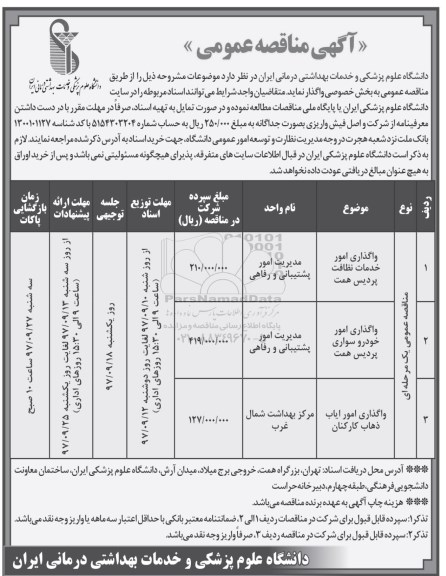 «آگهی مناقصه عمومی»
دانشگاه علوم پزشکی و خدمات بهداشتی درمانی ایران
دانشگاه علوم پزشکی و خدمات بهداشتی درمانی ایران در نظر دارد موضوعات مشروحه ذیل را از طریق
مناقصه عمومی به بخش خصوصی واگذار نماید. متقاضیان واجد شرایط می توانند اسناد مربوطه را در سایت
دانشگاه علوم پزشکی ایران یا پایگاه ملی مناقصات مطالعه نموده و در صورت تمایل به تهیه اسناد، صرفاً در مهلت مقرر با در دست داشتن
معرفینامه از شرکت و اصل فیش واریزی بصورت جداگانه به مبلغ ۲۵۰/۰۰۰ ریال به حساب شماره ۵۱۵۴۳۰۳۲۰۴ با کد شناسه ۱۳۰۰۱۰۱۱۲۷
بانک ملت نزد شعبه هجرت در وجه مدیریت نظارت و توسعه امور عمومی دانشگاه، جهت خرید اسناد به آدرس ذکر شده مراجعه نمایند. لازم
به ذکر است دانشگاه علوم پزشکی ایران در قبال اطلاعات سایت های متفرقه، پذیرای هیچگونه مسئولیتی نمی باشد و پس از خرید اوراق
به هیچ عنوان مبالغ دریافتی عودت داده نخواهد شد.
ردیف
نوع
موضوع
نام واحد
مبلغ سپرده شرکت در مناقصه (ریال)
مهلت توزیع اسناد
جلسه توجیهی
مهلت ارائه پیشنهادات
زمان بازگشایی پاکات
مناقصه عمومی یک مرحله ای
۱
واگذاری امور خدمات نظافت پردیس همت
مدیریت امور پشتیبانی و رفاهی
۲۱۰/۰۰۰/۰۰۰
۲
واگذاری امور خودرو سواری پردیس همت
مدیریت امور پشتیبانی و رفاهی
۴۱۹/۰۰۰/۰۰۰
۳
واگذاری امور ایاب ذهاب کارکنان
مرکز بهداشت شمال غرب
۱۲۷/۰۰۰/۰۰۰
از روز شنبه ۹۷/۰۹/۱۰ لغایت روز دوشنبه ۹۷/۰۹/۱۲
(ساعت ۹ الی ۱۵:۳۰ روزهای اداری)
روز یکشنبه ۹۷/۰۹/۱۸
از روز سه شنبه ۹۷/۰۹/۱۳ لغایت روز یکشنبه ۹۷/۰۹/۲۵
(ساعت ۹ الی ۱۵:۳۰ روزهای اداری)
سه شنبه ۹۷/۰۹/۲۷ ساعت ۱۰ صبح
ParsNamadData
پایگاه اطلاع رسانی مناقصه و مزایده
*** آدرس محل دریافت اسناد: تهران، بزرگراه همت، خروجی برج میلاد، میدان آرش، دانشگاه علوم پزشکی ایران، ساختمان معاونت
دانشجویی فرهنگی، طبقه چهارم، دبیرخانه حراست
*** هزینه چاپ آگهی به عهده برنده مناقصه می باشد.
تذکر۱: سپرده قابل قبول برای شرکت در مناقصات ردیف ۱ الی ۲، ضمانتنامه معتبر بانکی با حداقل اعتبار سه ماهه یا واریز وجه نقد می باشد.
تذکر۲: سپرده قابل قبول برای شرکت در مناقصه ردیف ۳، صرفاً واریز وجه نقد می باشد.
دانشگاه علوم پزشکی و خدمات بهداشتی درمانی ایران